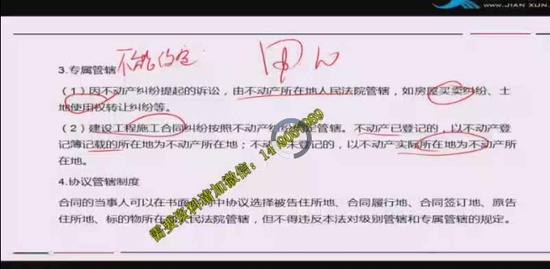 WWW.JIAN XUN.
不能约定
3.专属管辖
（1）因不动产纠纷提起的诉讼，由不动产所在地人民法院管辖，如房屋买卖纠纷、土
地使用权转让纠纷等。
（2）建设工程施工合同纠纷按照不动产纠纷确定管辖。不动产已登记的，以不动产登
记簿记载的所在地为不动产所在地；不动产未登记的，以不动产实际所在地为不动产所
在地。
4.协议管辖制度
合同的当事人可以在书面合同中协议选择被告住所地、合同履行地、合同签订地、原告
住所地、标的物所在地人民法院管辖，但不得违反本法对级别管辖和专属管辖的规定。
需要资料请加微信：